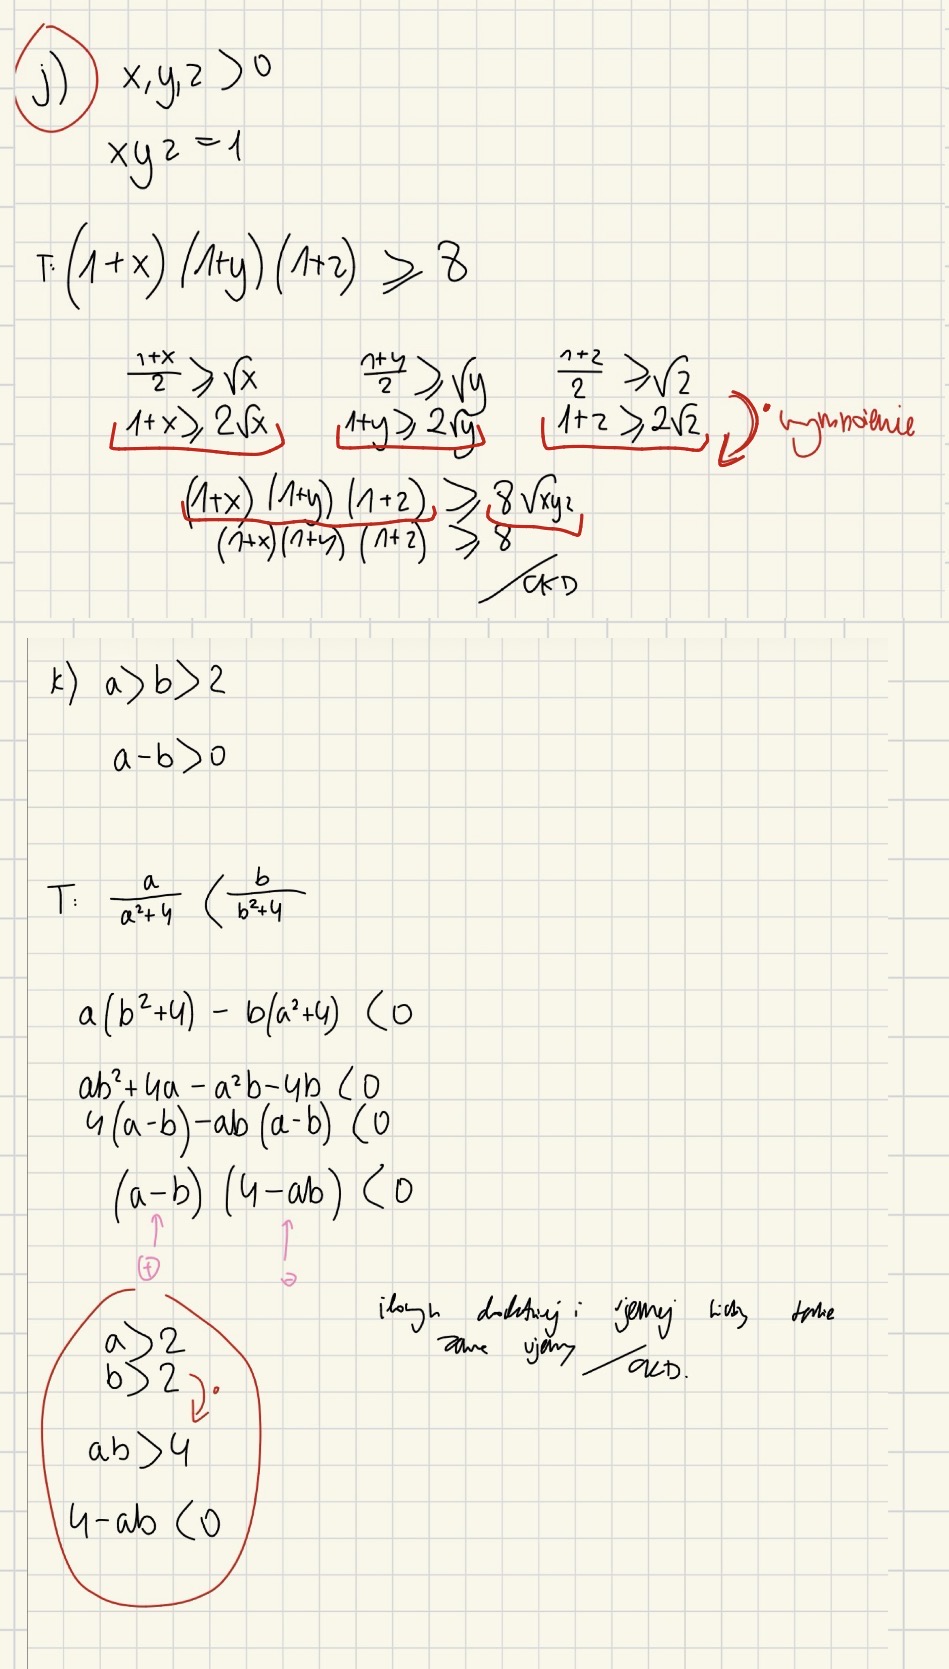 j) x,y,z > 0
xyz = 1
T: (1+x) (1+y) (1+z) ⩾ 8
(1+x)/2 ⩾ √x (1+y)/2 ⩾ √y (1+z)/2 ⩾ √z
1+x ⩾ 2√x 1+y ⩾ 2√y 1+z ⩾ 2√z · wymnożenie
(1+x) (1+y) (1+z) ⩾ 8√xyz
(1+x)(1+y) (1+z) ⩾ 8
CKD
k) a > b > 2
a-b > 0
T: a/(a²+4) < b/(b²+4)
a(b²+4) - b(a²+4) < 0
ab²+4a - a²b - 4b < 0
4(a-b) - ab(a-b) < 0
(a-b) (4-ab) < 0
⊕ ⊖
iloczyn dodatniej i ujemnej liczby
a > 2
zawsze ujemny
b > 2 ·
CKD.
ab > 4
4-ab < 0